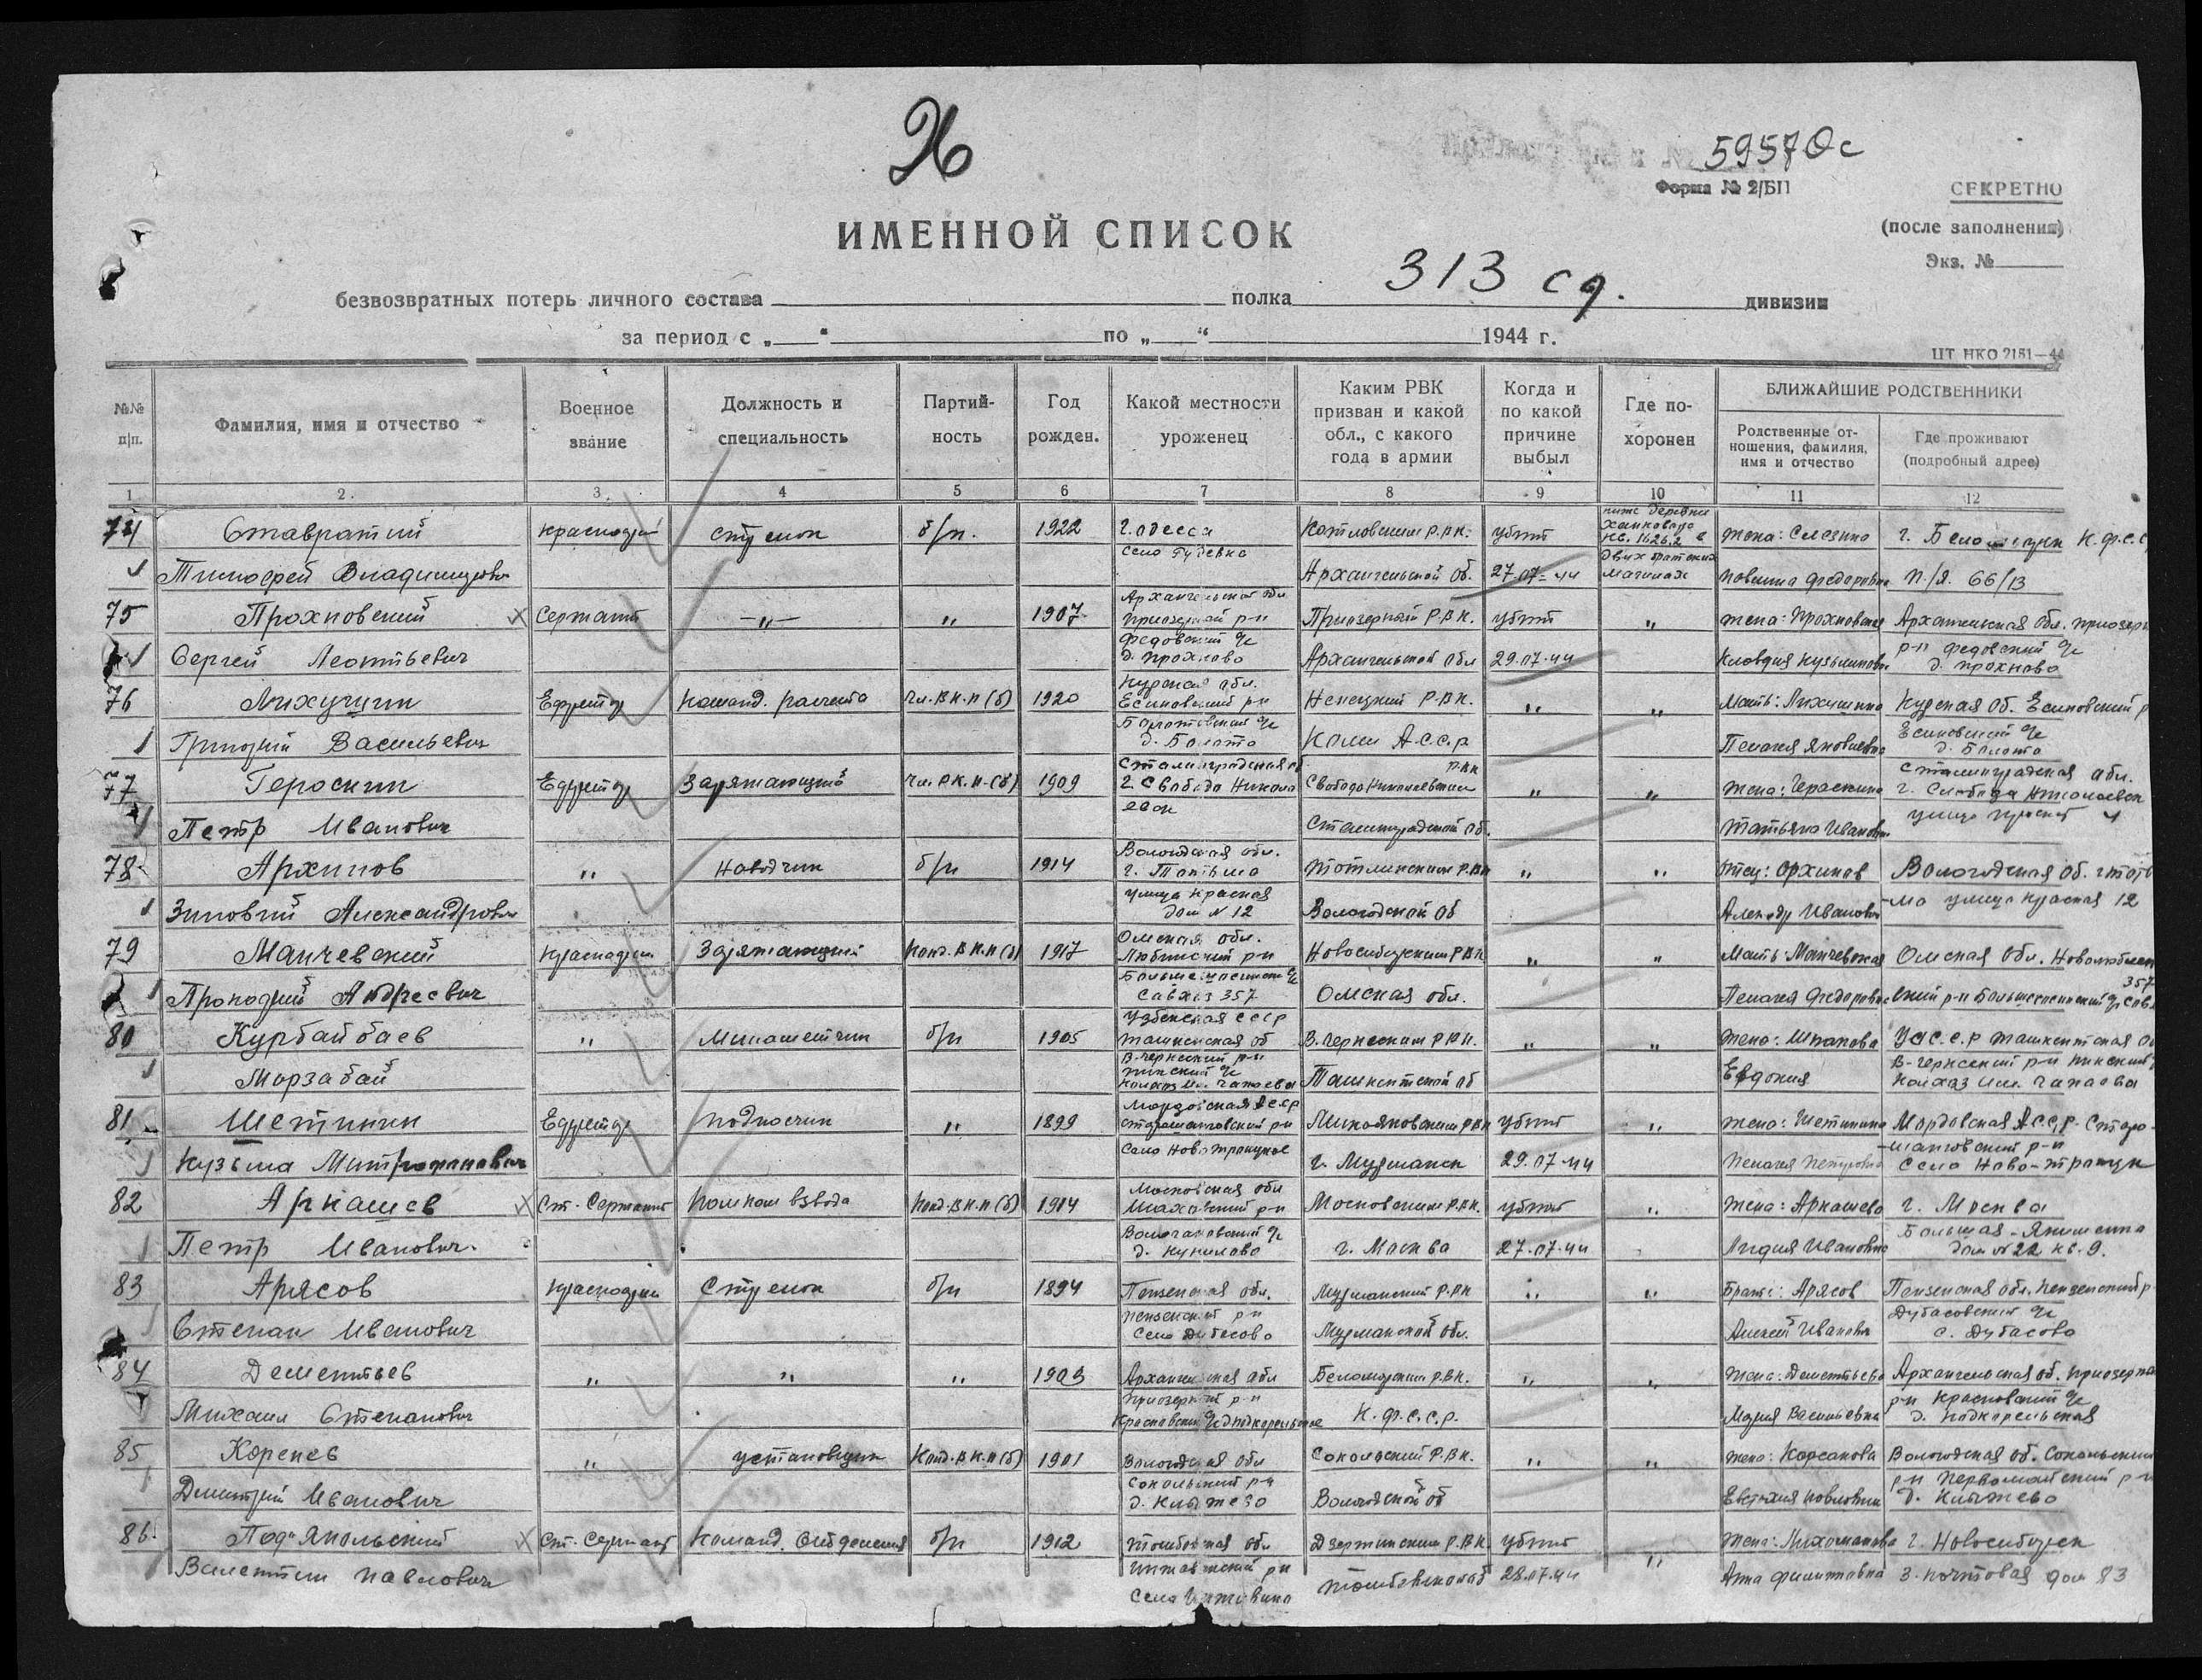 26
59570с
Форма № 2/БП
СЕКРЕТНО
(после заполнения)
Экз. №
ИМЕННОЙ СПИСОК
безвозвратных потерь личного состава полка 313 сд. дивизии
за период с „ “ по „ “ 1944 г.
ЦТ НКО 2151—44
№№ п/п.
Фамилия, имя и отчество
Военное звание
Должность и специальность
Партийность
Год рожден.
Какой местности уроженец
Каким РВК призван и какой обл., с какого года в армии
Когда и по какой причине выбыл
Где похоронен
БЛИЖАЙШИЕ РОДСТВЕННИКИ
Родственные отношения, фамилия, имя и отчество
Где проживают (подробный адрес)
1 2 3 4 5 6 7 8 9 10 11 12
74 Ставратий красноарм стрелок б/п. 1922 г. Одесса Котловским Р.В.К. убит жена: Слезина г. Беломорск К.ф.с.с
Тимофей Владимирович село Гудевка Архангельской Об. 27.07-44 двух братских могилах Федоровна п/я. 66/13
75 Прохновский Сержант —„— „ 1907 Архангельской обл. Приозерный р-н Приозерный Р.В.К. убит „ жена: Прохновская Архангельская Обл. приозерн
Сергей Леонтьевич Федовский с/с д. Прохново Архангельской Обл 29.07.44 Клавдия Кузьминовн р-н Федовский с/с д. Прохново
76 Лихушин Ефрейтор Команд. расчета чл.ВК.п(б) 1920 Курская обл. Есиновский р-н Ненецкий Р.В.К. „ „ Мать: Лихушина Курская Об. Есиновский р
Григорий Васильевич Болотовский с/с д. Болото Коми А.С.С.р Пелагея Яковлевна Есиновский с/с д. Болото
77 Героскин Ефрейтор Заряжающий 1909 Сталинградская об г. Свобода Никола Свободо Николаевским Р.ВК „ „ жена: Гераскина Сталинградская обл.
Петр Иванович евск Сталинградской об. Татьяна Ивановн г. Слобода Николаевск улица
78. Архипов „ Наводчик б/п 1914 Вологодская обл. г. Тотьма Тотминским Р.ВК „ „ Отец: Архипов Вологодская об. г тоть
Зиновий Александрович улица Красная дом № 12 Вологодской об Александр Иванович ма улица Красная 12
79 Манчевский Красноарм Заряжающий Канд.В К.п(б) 1917 Омская обл. Любинский р-н Новосибирским Р ВК „ „ Мать Манчевская Омская обл. Новолюбин
Прокофий Андреевич Совхоз 357 Омская обл. Пелагея Федоровна ский р-н 357
80 Курбайбаев „ Минометчик б/п 1905 Узбекская ссср Ташкенская об В. Чернеским Р В К. „ „ жена: Шпакова Уз С.С.Р Ташкентская Об
Морзабай В-чернеский р-н пинский с/с Колхоз им. Чапаева Ташкентской об Евдокия В-Чернеский р-н пинский Колхоз им. Чапаева
81 Шетинин Ефрейтор подносчик „ 1899 Мордовская АССР Старошайговский р-н убит „ жена: Шетинина Мордовская А.С.С.р. Старо-
Кузьма Митрофанович Село Ново Троицкое г. Мурманск 29.07.44 Пелагея Петровна шайговский р-н село Ново-троицк
82 Аркашев Ст. Сержант Помком взвода Канд.В К.п(б) 1914 Московская обл Шаховский р-н Московским Р.ВК. убит „ жена: Аркашева г. Москва
Петр Иванович. д. Курилово г. Москва 27.07.44 Лидия Ивановна Большая - Якиманка дом № 22 кв. 9.
83 Арясов Красноарм Стрелок б/п 1894 Пензенская обл. Мурманский Р.ВК „ „ Брат: Арясов Пензенская обл. Пензенский р
Степан Иванович пензенский р-н Село Дубасово Мурманской обл. Алексей Иванович Дубасовский с/с с. Дубасово
84 Дементьев „ „ „ 1903 Архангельская обл Беломорским Р.В К. „ „ жена: Дементьева Архангельская об. приозерна
Михаил Степанович Приозерный р-н К. ф. с. с. р. Мария Васильевна р-н Красновский с/с д. подкорельская
85 Коренев „ установщик Канд.В К.п(б) 1901 Вологодская обл Сокольский Р.В К. „ „ жена: Вологодская об. Сокольский
Дмитрий Иванович Сокольский р-н д. Клыжево Вологодской об р-н Первомайский р-н д. Клыжево
86. Под"япольский Ст. Сержант Команд. отделения б/п 1912 Тамбовская обл Дзержинским Р.В К. убит „ жена: г. Новосибирск
Валентин Павлович Тамбовской об 28.07.44 Анна Филипповна 3. почтовая дом 83